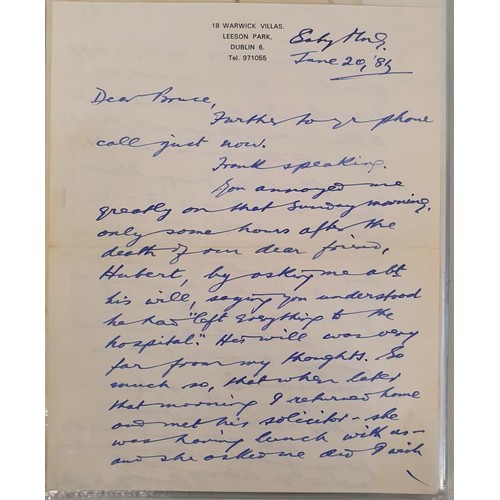 18 WARWICK VILLAS,
LEESON PARK,
DUBLIN 6.
Tel. 971055
June 20,
Dear Bruce,
Further to yr phone
call just now.
Frank speaking.
You annoyed me
greatly on that Sunday morning,
only some hours after the
death of our dear friend,
Hubert, by asking me abt
his will, saying you understood
he had "left everything to the
hospital." His will was very
far from my thoughts. So
much so, that when later
that morning I returned home
and met his solicitor - she
was having lunch with us -
and she asked me did I wish